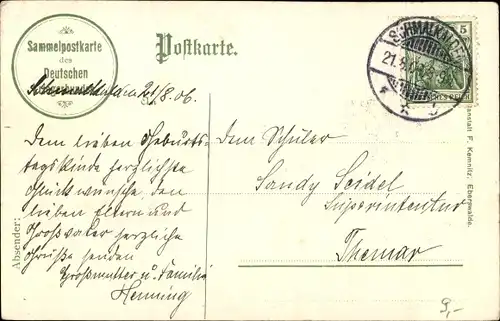 Sammelpostkarte
des
Deutschen
Postkarte.
SCHMALKALDEN
5
21.8.
Schmalkalden 21/8.06.
Dem lieben Geburts-
tagskinde herzlichste
Glückwünsche, den
lieben Eltern und
Großvater herzliche
Grüße senden
Großmutter u. Familie
Henning
Dem Schüler
Sandy Seidel
Superintentur
Themar
Absender:
F. Kemnitz, Eberswalde.
9,-